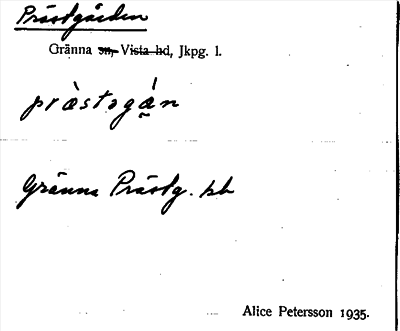 Prästgården
Gränna sn, Vista hd, Jkpg. l.
pràstogá̰n
Gränna Prästg. kb
Alice Petersson 1935.